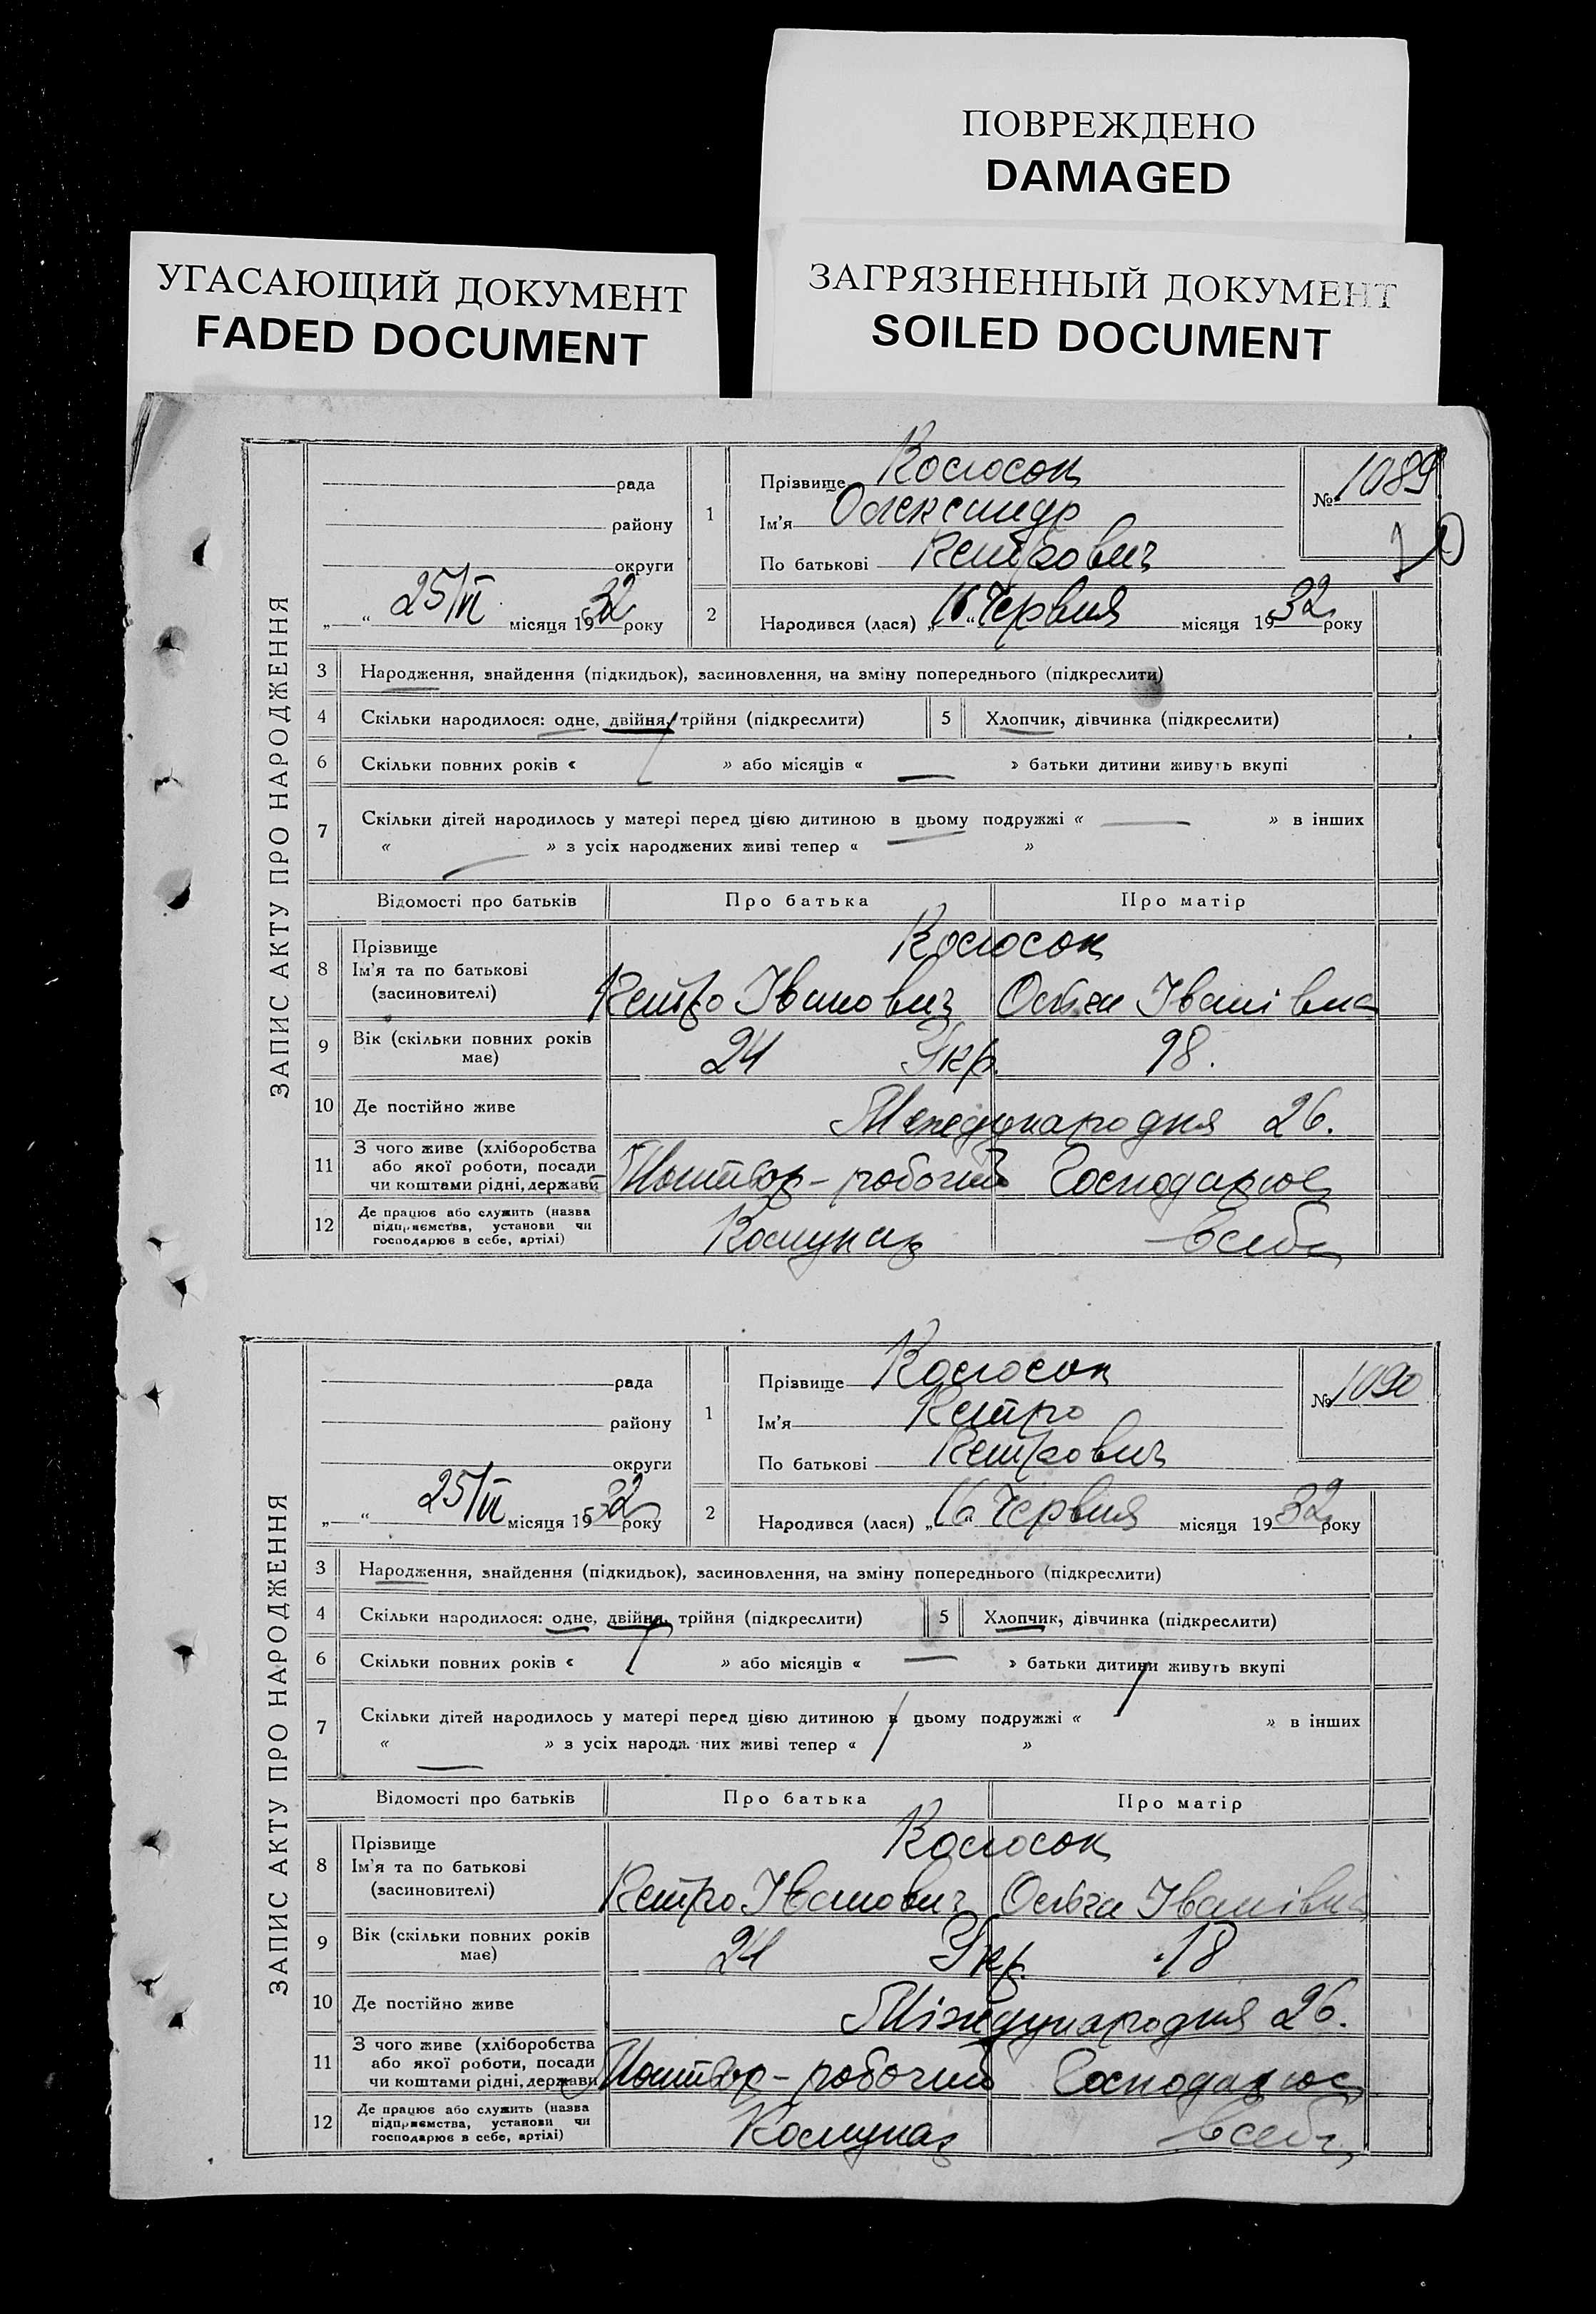 ПОВРЕЖДЕНО
DAMAGED
УГАСАЮЩИЙ ДОКУМЕНТ
FADED DOCUMENT
ЗАГРЯЗНЕННЫЙ ДОКУМЕНТ
SOILED DOCUMENT
ЗАПИС АКТУ ПРО НАРОДЖЕННЯ
рада
району
округи
„ “ 25/VI місяця 1932 року
1
Прізвище Колосок
Ім'я Олександр
По батькові Петрович
№ 1089
2
Народився (лася) „16“ Червня місяця 1932 року
3 Народження, знайдення (підкидьок), засиновлення, на зміну попереднього (підкреслити)
4 Скільки народилося: одне, двійня, трійня (підкреслити) 5 Хлопчик, дівчинка (підкреслити)
6 Скільки повних років « » або місяців « — » батьки дитини живуть вкупі
7 Скільки дітей народилось у матері перед цією дитиною в цьому подружжі « — » в інших
« — » з усіх народжених живі тепер « »
Відомості про батьків Про батька Про матір
8 Прізвище Колосок
Ім'я та по батькові
(засиновителі) Петро Іванович Ольга Іванівна
9 Вік (скільки повних років має) 24 Укр. 18.
10 Де постійно живе 26.
11 З чого живе (хліборобства
або якої роботи, посади
чи коштами рідні, держави робочий Господарює
12 Де працює або служить (назва
підприємства, установи чи
господарює в себе, артілі) в себе
ЗАПИС АКТУ ПРО НАРОДЖЕННЯ
рада
району
округи
„ “ 25/VI місяця 1932 року
1
Прізвище Колосок
Ім'я Петро
По батькові Петрович
№ 1090
2
Народився (лася) „16“ Червня місяця 1932 року
3 Народження, знайдення (підкидьок), засиновлення, на зміну попереднього (підкреслити)
4 Скільки народилося: одне, двійня, трійня (підкреслити) 5 Хлопчик, дівчинка (підкреслити)
6 Скільки повних років « » або місяців « — » батьки дитини живуть вкупі
7 Скільки дітей народилось у матері перед цією дитиною в цьому подружжі « » в інших
« — » з усіх народжених живі тепер « »
Відомості про батьків Про батька Про матір
8 Прізвище Колосок
Ім'я та по батькові
(засиновителі) Петро Іванович Ольга Іванівна
9 Вік (скільки повних років має) 24 Укр. 18
10 Де постійно живе 26.
11 З чого живе (хліборобства
або якої роботи, посади
чи коштами рідні, держави робочий Господарює
12 Де працює або служить (назва
підприємства, установи чи
господарює в себе, артілі) в себе